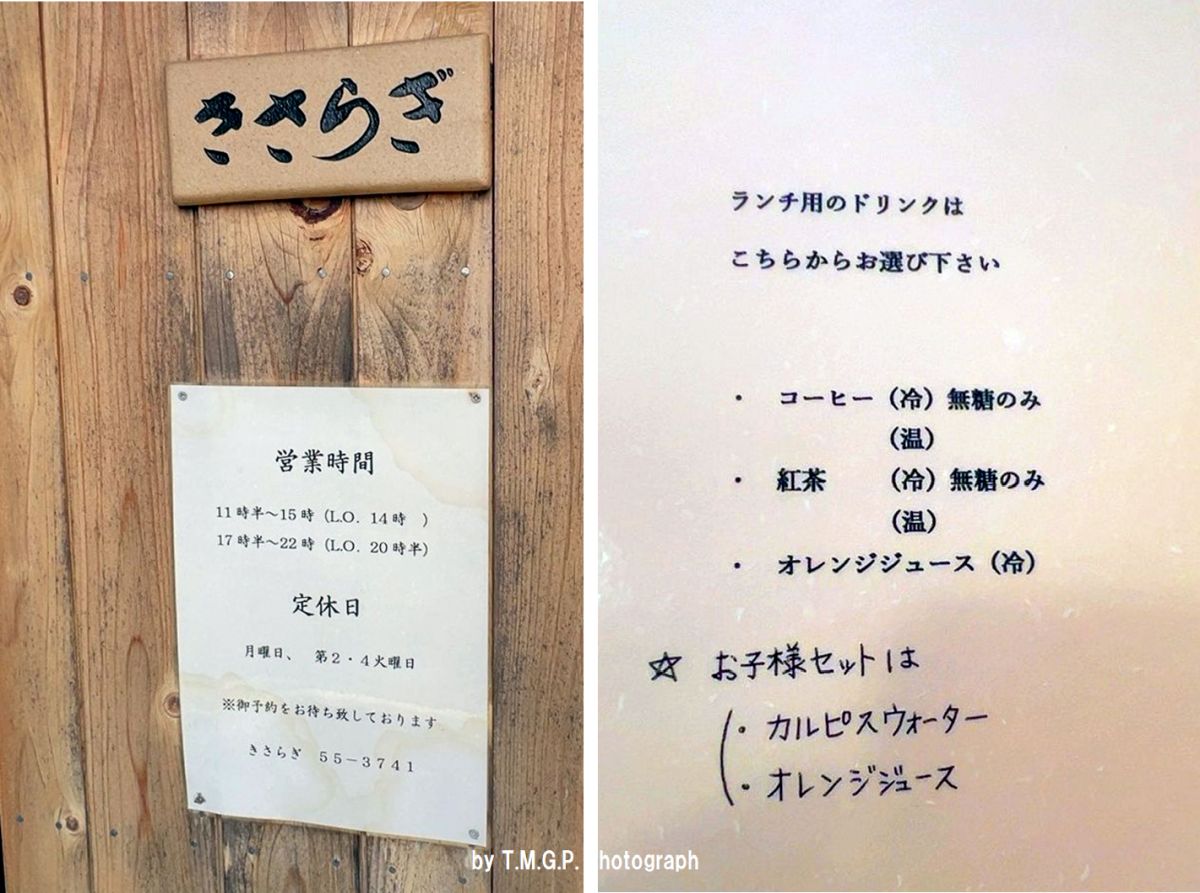 きさらぎ
営業時間
11時半～15時（L.O. 14時　）
17時半～22時（L.O. 20時半）
定休日
月曜日、　第2・4火曜日
※御予約をお待ち致しております
きさらぎ　55－3741
ランチ用のドリンクは
こちらからお選び下さい
・　コーヒー（冷）無糖のみ
（温）
・　紅茶　　（冷）無糖のみ
（温）
・　オレンジジュース（冷）
☆ お子様セットは
・カルピスウォーター
・オレンジジュース
by T.M.G.P. Photograph